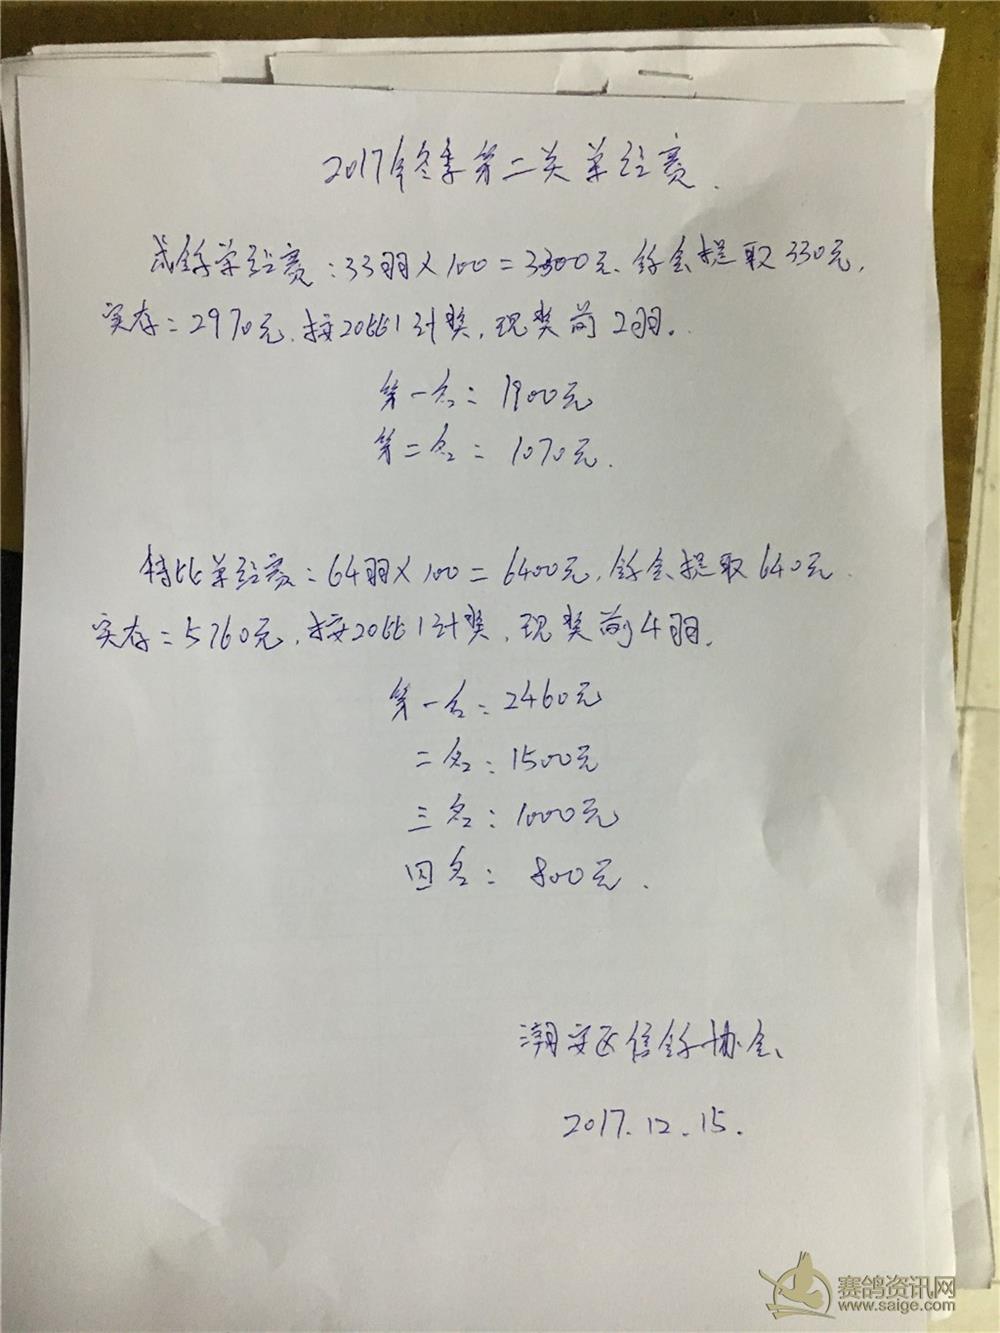 2017年冬季第二关单给赛.
成鸽单给赛:33羽×100=3300元、鸽会提取330元,
实存:2970元.按20比1计奖,现奖前2羽。
第一名:1900元
第二名:1070元.
特比单给赛:64羽×100=6400元,鸽会提取640元.
实存:5760元,按20比1计奖,现奖前4羽.
第一名:2460元
二名:1500元
三名:1000元
四名:800元.
潮安区信鸽协会、
2017.12.15.
赛鸽资讯网
www.saige.com